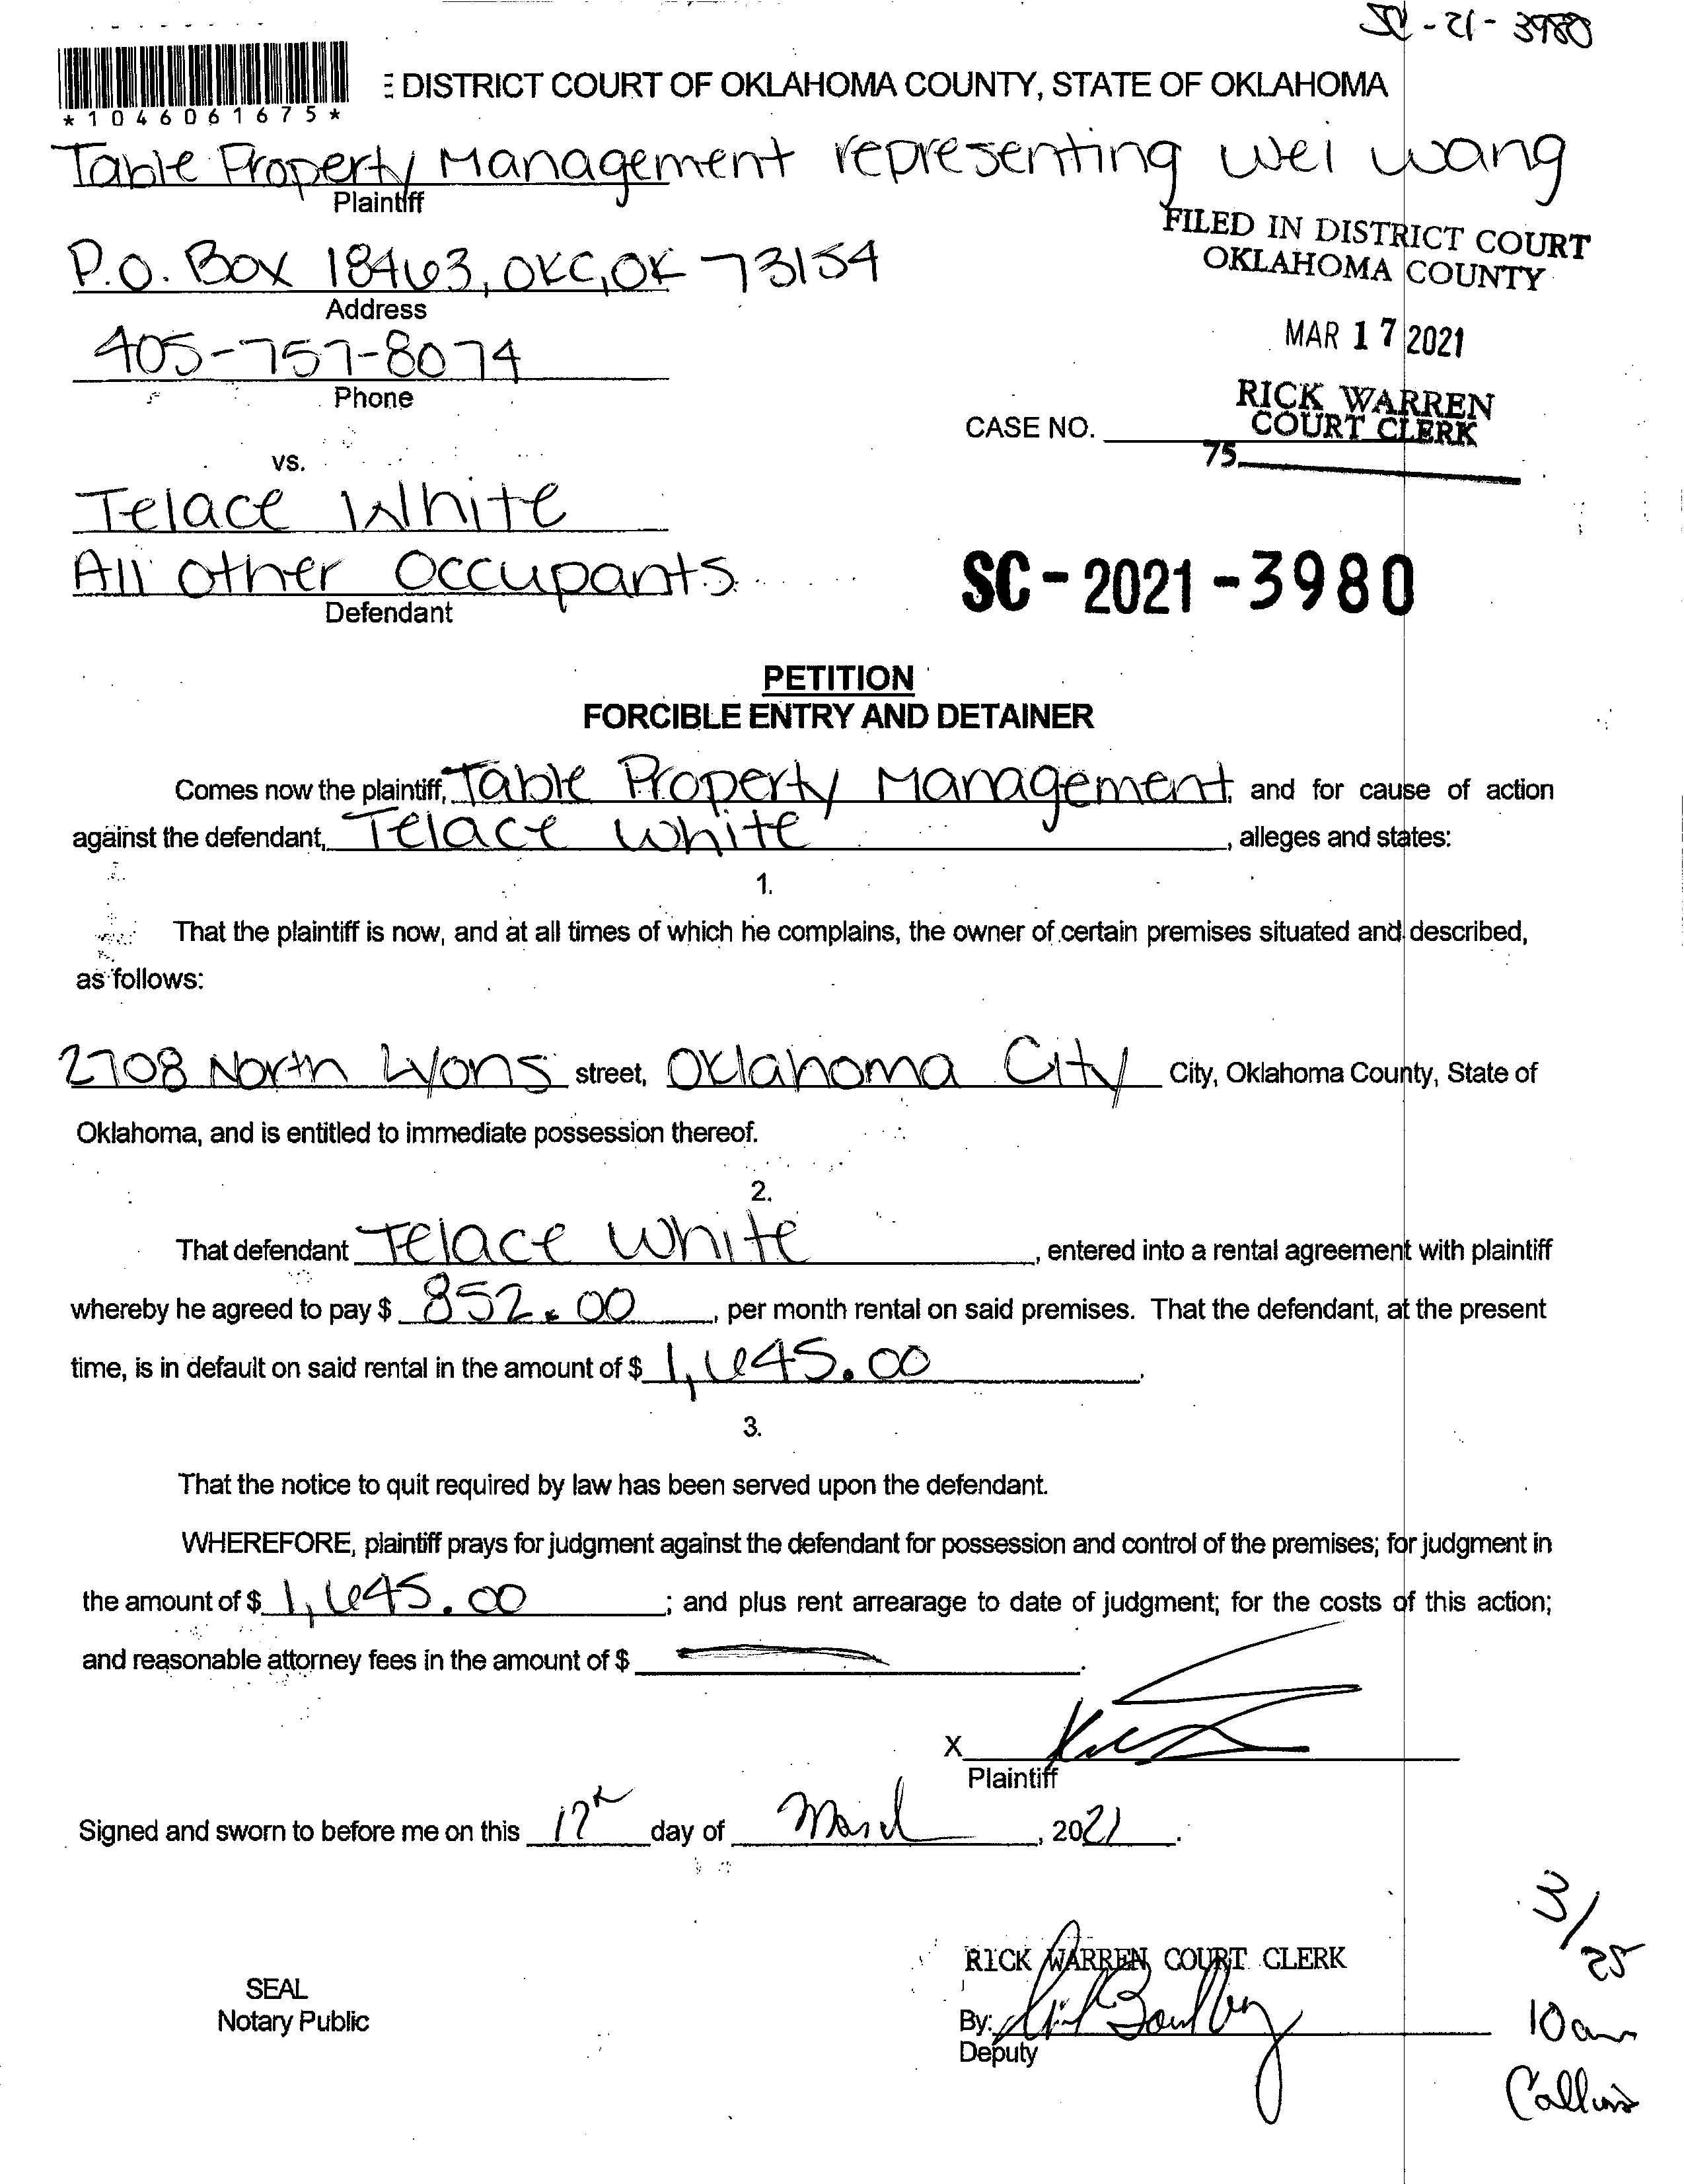 SC-21-3980
*1046061675*
E DISTRICT COURT OF OKLAHOMA COUNTY, STATE OF OKLAHOMA
Table Property Management representing wei wang
Plaintiff
FILED IN DISTRICT COURT
OKLAHOMA COUNTY
P.O. Box 18463, OKC, OK 73154
Address
MAR 17 2021
405-757-8074
Phone
RICK WARREN
COURT CLERK
CASE NO.
75
vs.
Telace White
All other Occupants
Defendant
SC-2021-3980
PETITION
FORCIBLE ENTRY AND DETAINER
Comes now the plaintiff, Table Property Management, and for cause of action
against the defendant, Telace White, alleges and states:
1.
That the plaintiff is now, and at all times of which he complains, the owner of certain premises situated and described,
as follows:
2708 North Lyons street, Oklahoma City City, Oklahoma County, State of
Oklahoma, and is entitled to immediate possession thereof.
2.
That defendant Telace White, entered into a rental agreement with plaintiff
whereby he agreed to pay $ 852.00, per month rental on said premises. That the defendant, at the present
time, is in default on said rental in the amount of $ 1,645.00.
3.
That the notice to quit required by law has been served upon the defendant.
WHEREFORE, plaintiff prays for judgment against the defendant for possession and control of the premises; for judgment in
the amount of $ 1,645.00; and plus rent arrearage to date of judgment; for the costs of this action;
and reasonable attorney fees in the amount of $.
X
Plaintiff
Signed and sworn to before me on this 17th day of March, 2021.
3/25
10am
Collins
RICK WARREN COURT CLERK
SEAL
Notary Public
By:
Deputy